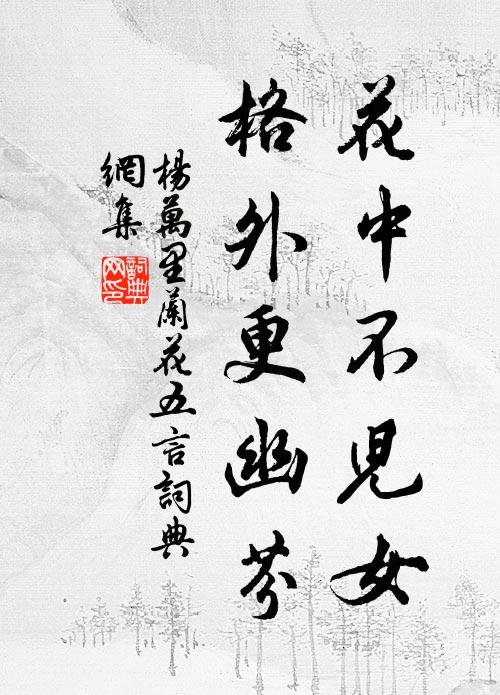 花中不児女
格外更幽芬
楊萬里蘭花五言詞典
網集
詞典
网印